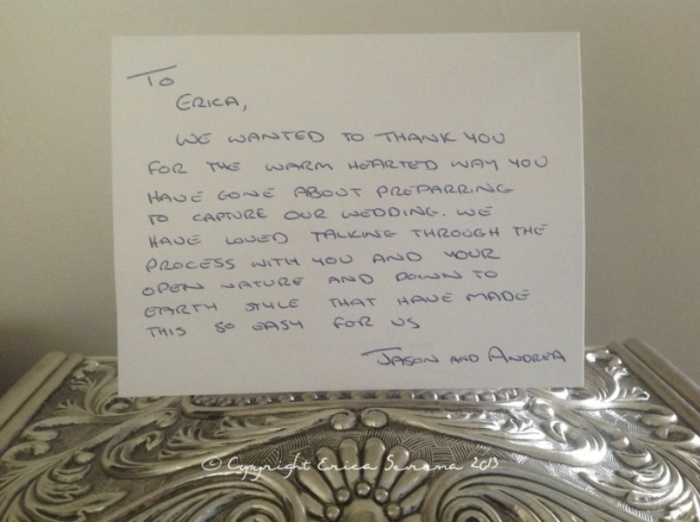 To
Erica,
WE WANTED TO THANK YOU
FOR THE WARM HEARTED WAY YOU
HAVE GONE ABOUT PREPARRING
TO CAPTURE OUR WEDDING. WE
HAVE LOVED TALKING THROUGH THE
PROCESS WITH YOU AND YOUR
OPEN NATURE AND DOWN TO
EARTH STYLE THAT HAVE MADE
THIS SO EASY FOR US
JASON AND ANDREA
© Copyright Erica 2013